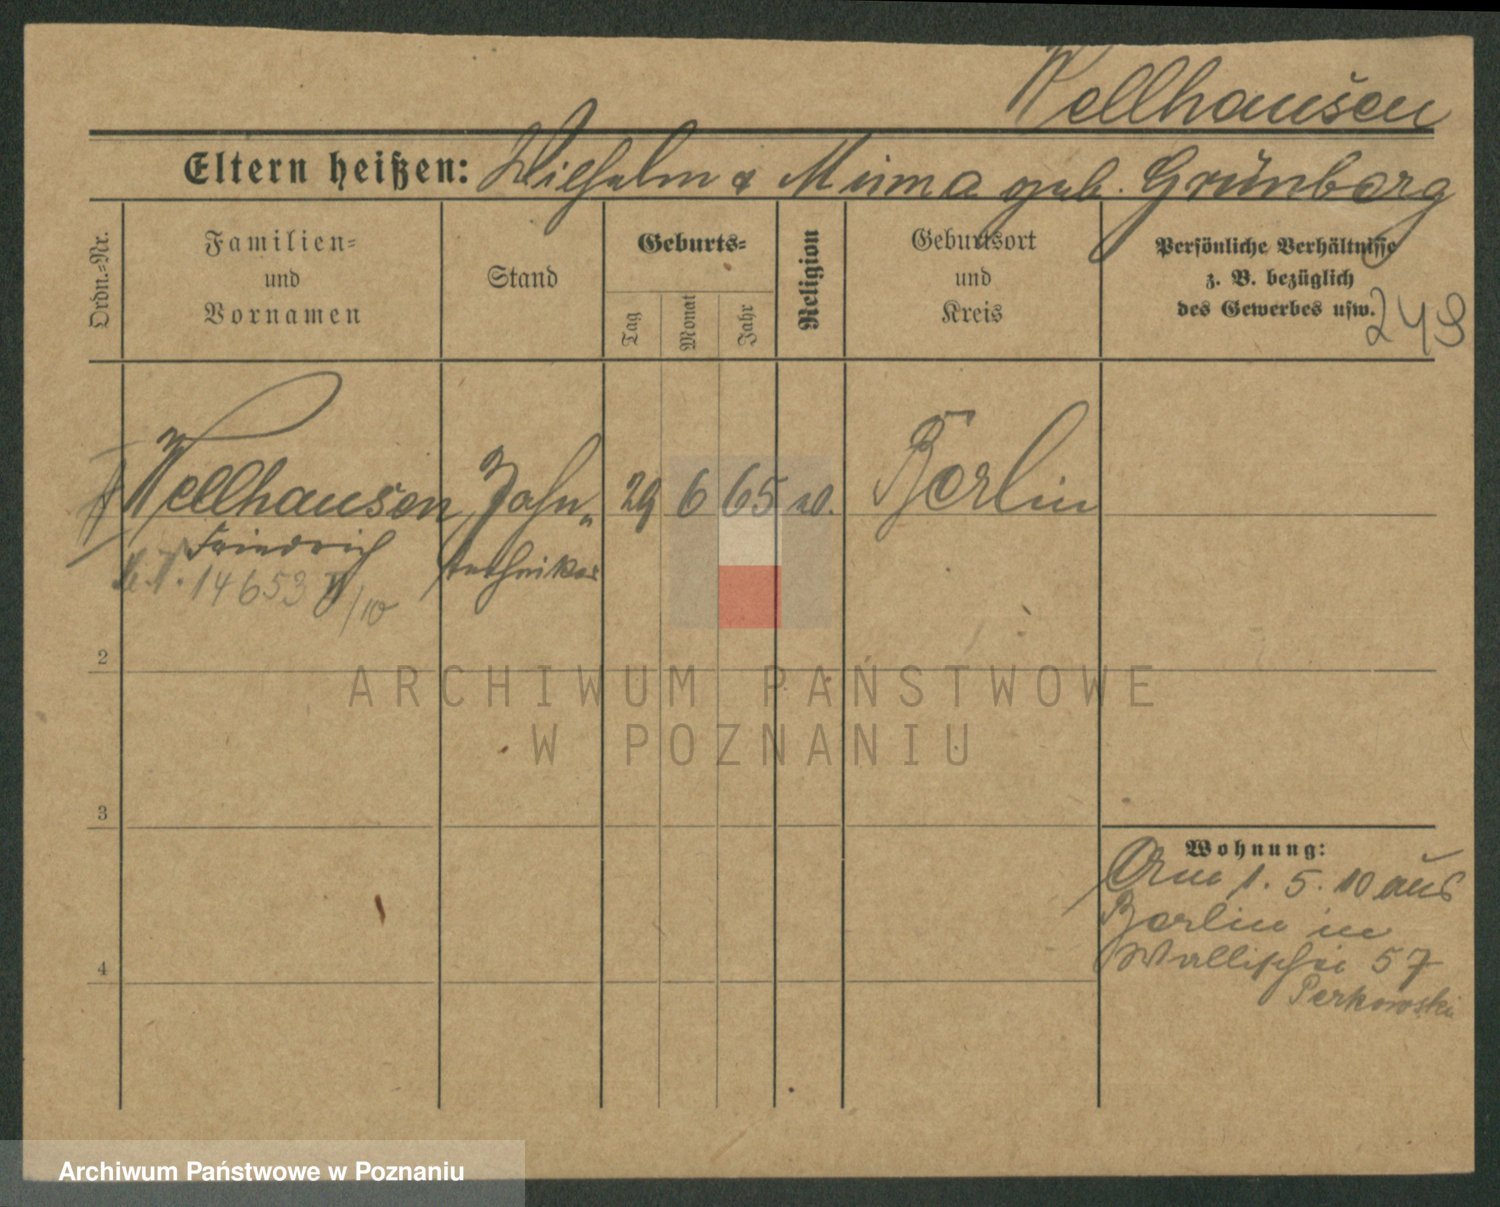 Wellhausen
Eltern heißen: Wilhelm & Minna geb. Grünberg
Ordn.-Nr.
Familien- und Vornamen
Stand
Geburts-
Tag
Monat
Jahr
Religion
Geburtsort und Kreis
Persönliche Verhältnisse
z. B. bezüglich
des Gewerbes usw.
249
Wellhausen Zahn- 29 6 65 Berlin
Friedrich techniker
14653 /10
2
3
4
Wohnung:
Am 1. 5. 10 aus
Berlin in
Wallischei 57
Perkowski
ARCHIWUM PAŃSTWOWE
W POZNANIU
Archiwum Państwowe w Poznaniu